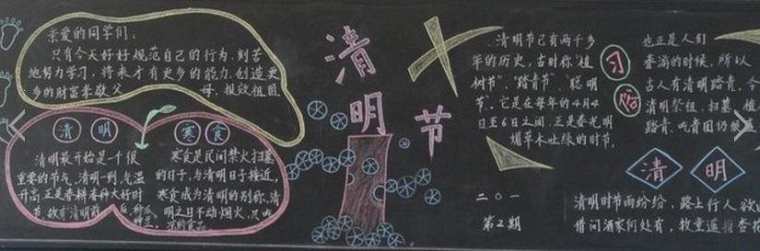 亲爱的同学们:
只有今天好好规范自己的行为,刻苦
地努力学习,将来才有更多的能力,创造更
多的财富孝敬父母,报效祖国
清明
清明最开始是一个很
重要的节气,清明一到,气温
升高,正是春耕春种大好时
节,故有清明前
寒食
寒食是民间禁火扫墓
的日子,与清明日子接近,
寒食成为清明的别称,清
明之日不动烟火,只吃
清明节
清明节已有两千多
年的历史,古时你"植
树节"、"踏青节"、聪明
节",它是在每年的4月4
日至6日之间,正是春光明
媚草木吐绿的时节.
二〇一
第2期
习俗
也正是人们
春游的时候,所以
古人有清明踏青,今
清明祭祖,扫墓,植
踏青、吃青团仍然
清明
清明时节雨纷纷,路上行人欲
借问酒家何处有,牧童遥指杏花